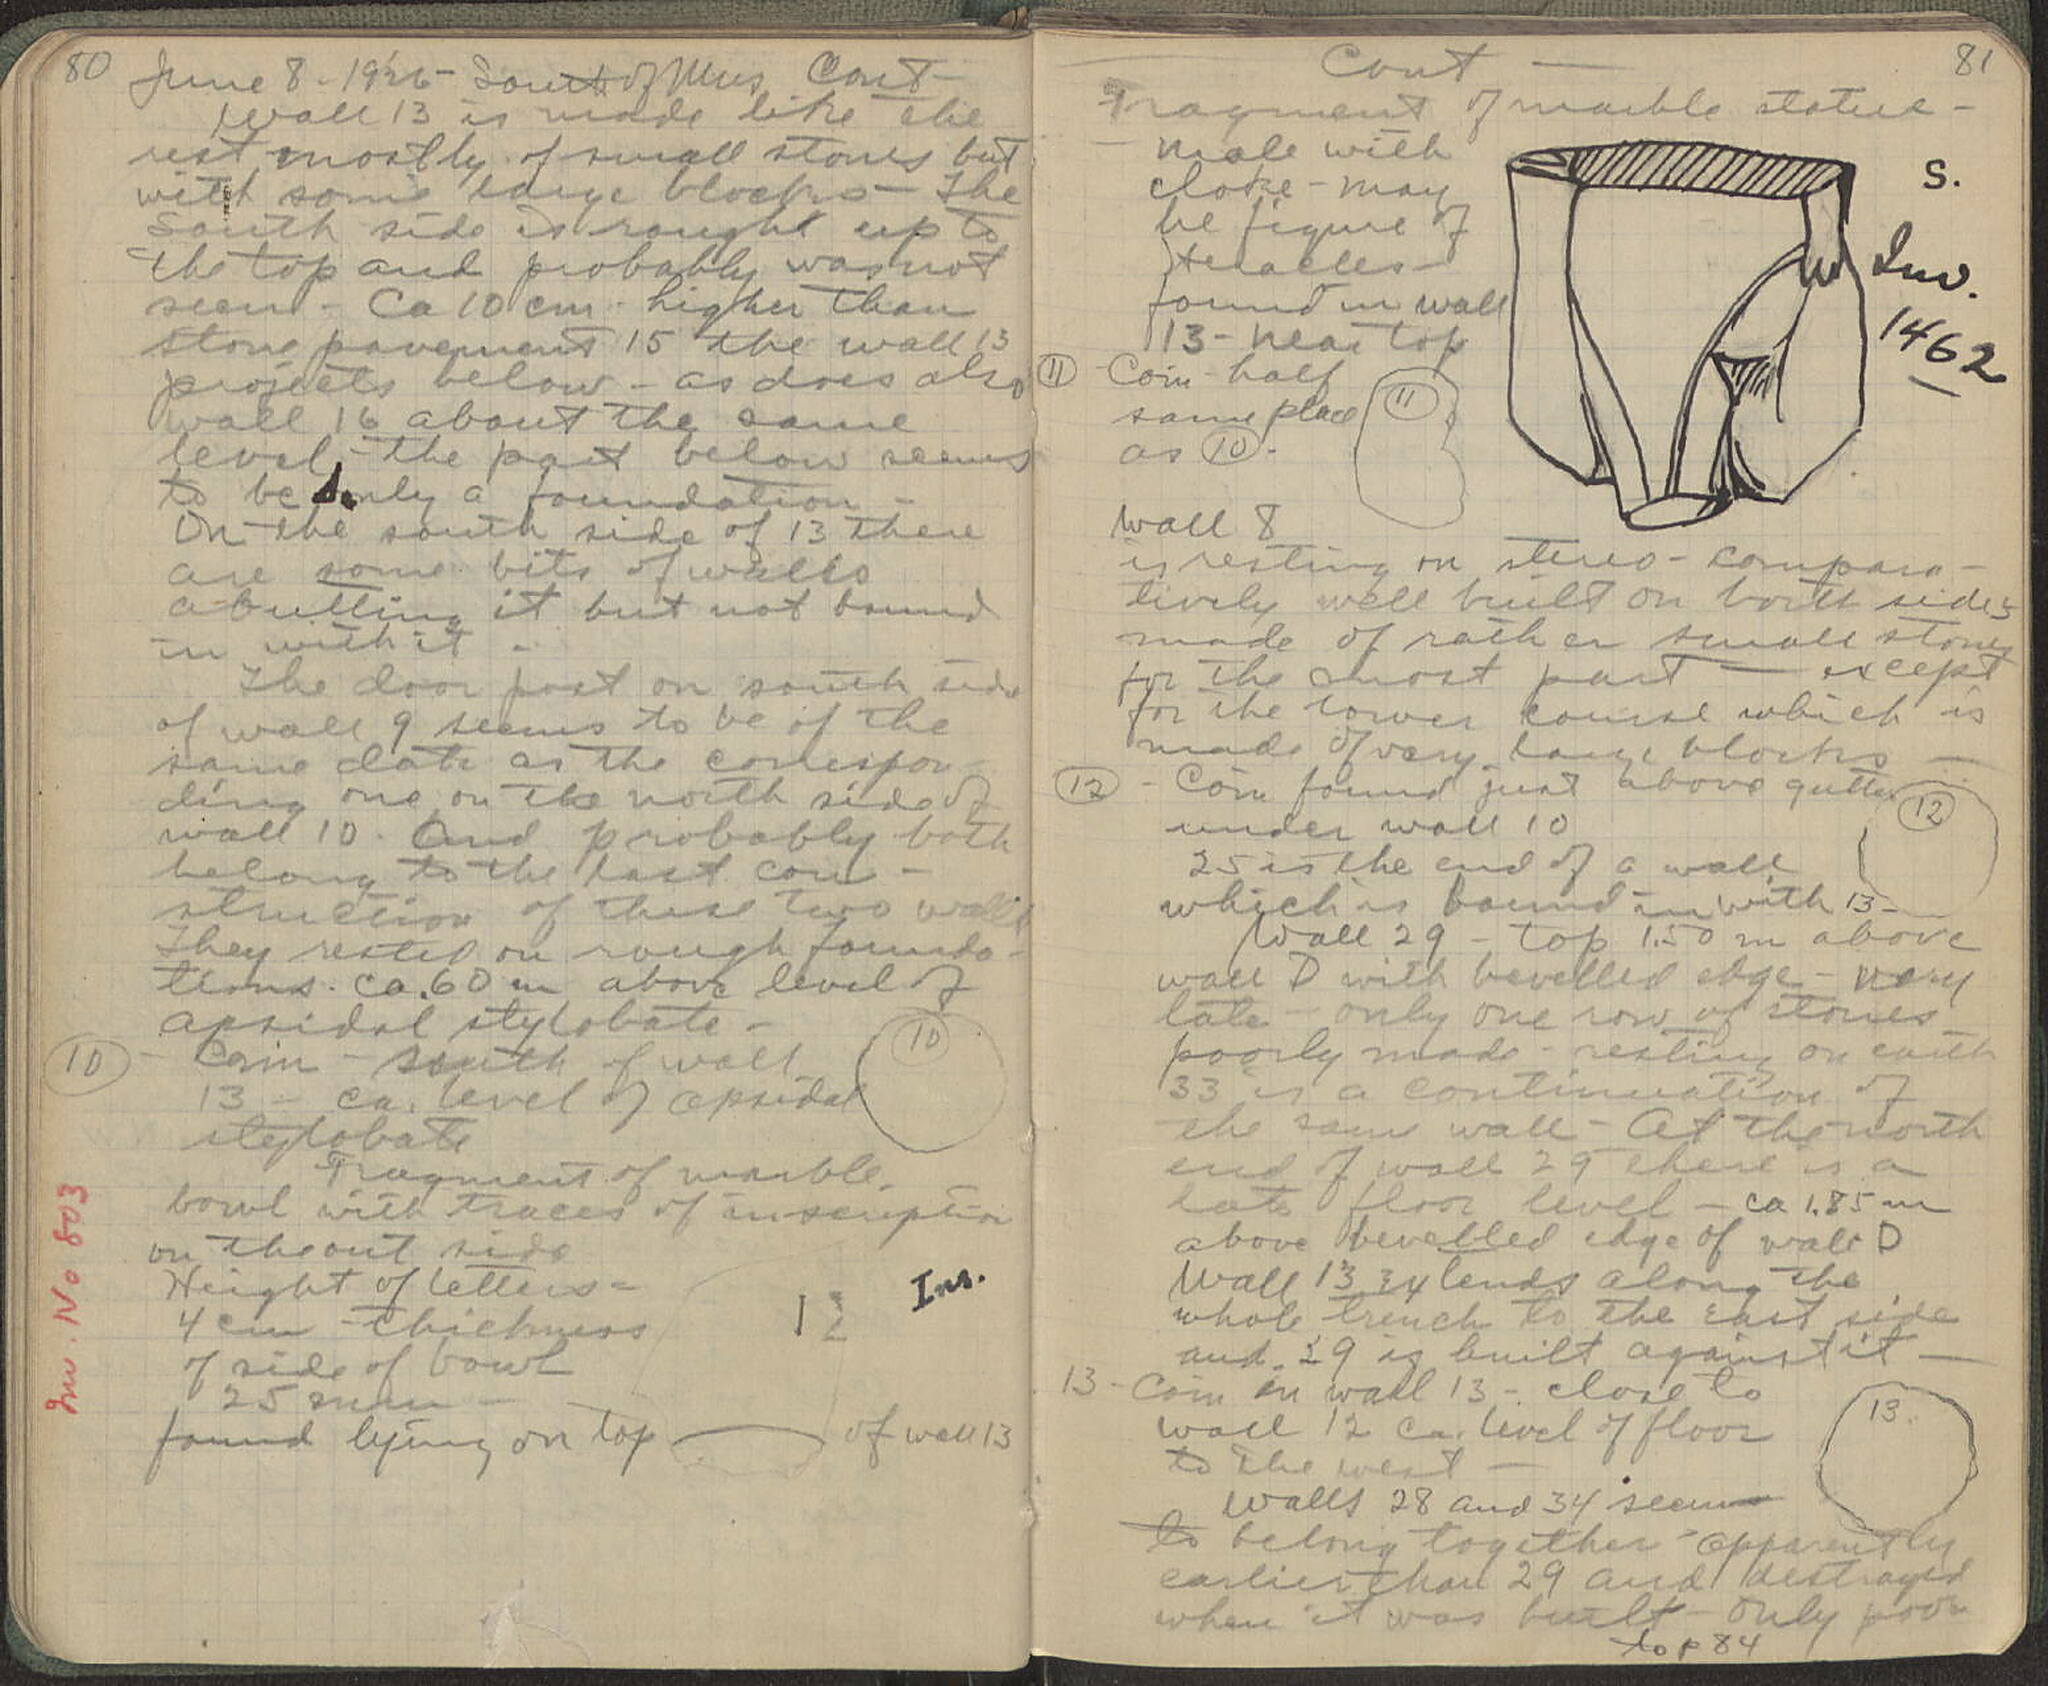 80 June 8 - 1926 - South of Mus. Cont -
Wall 13 is made like the
rest mostly of small stones but
with some large blocks - The
South side is rough up to
the top and probably was not
seen - Ca 10 cm. higher than
stone pavement 15 the wall 13
projects below - as does also
wall 16 about the same
level - the part below seems
to be only a foundation -
On the south side of 13 there
are some bits of walls
abutting it but not bound
in with it -
The door post on south side
of wall 9 seems to be of the
same date as the correspon-
ding one on the north side of
wall 10. And probably both
belong to the last con-
struction of these two walls
They rested on rough founda-
tions. ca .60 m above level of
apsidal stylobate -
10 - Coin - south of wall
13 - ca. level of apsidal
stylobate
10
Fragment of marble
bowl with traces of inscription
on the out side
Height of letters =
4 cm - thickness
of side of bowl
25 mm -
found lying on top of wall 13
Ins.
Inv. No 803
Cont - 81
Fragment of marble statue -
- male with
cloke - may
be figure of
Heracles -
found in wall
13 - near top
S.
Inv.
1462
11 Coin half
same place
as 10 -
11
Wall 8
is resting on stereo - compara-
tively well built on both sides
made of rather small stones
for the most part - except
for the lower course which is
made of very large blocks -
12 - Coin found just above gutter
under wall 10
12
25 is the end of a wall
which is bound in with 13 -
Wall 29 - top 1.50 m above
wall D with bevelled edge - very
late - only one row of stones
poorly made - resting on earth
33 is a continuation of
the same wall - At the north
end of wall 29 there is a
late floor level - ca 1.85 m
above bevelled edge of wall D
Wall 13 extends along the
whole trench to the east side
and 29 is built against it -
13 - Coin in wall 13 - close to
wall 12 ca. level of floor
to the west -
13.
Walls 28 and 34 seem
to belong together - apparently
earlier than 29 and destroyed
when it was built - only poor
to p 84